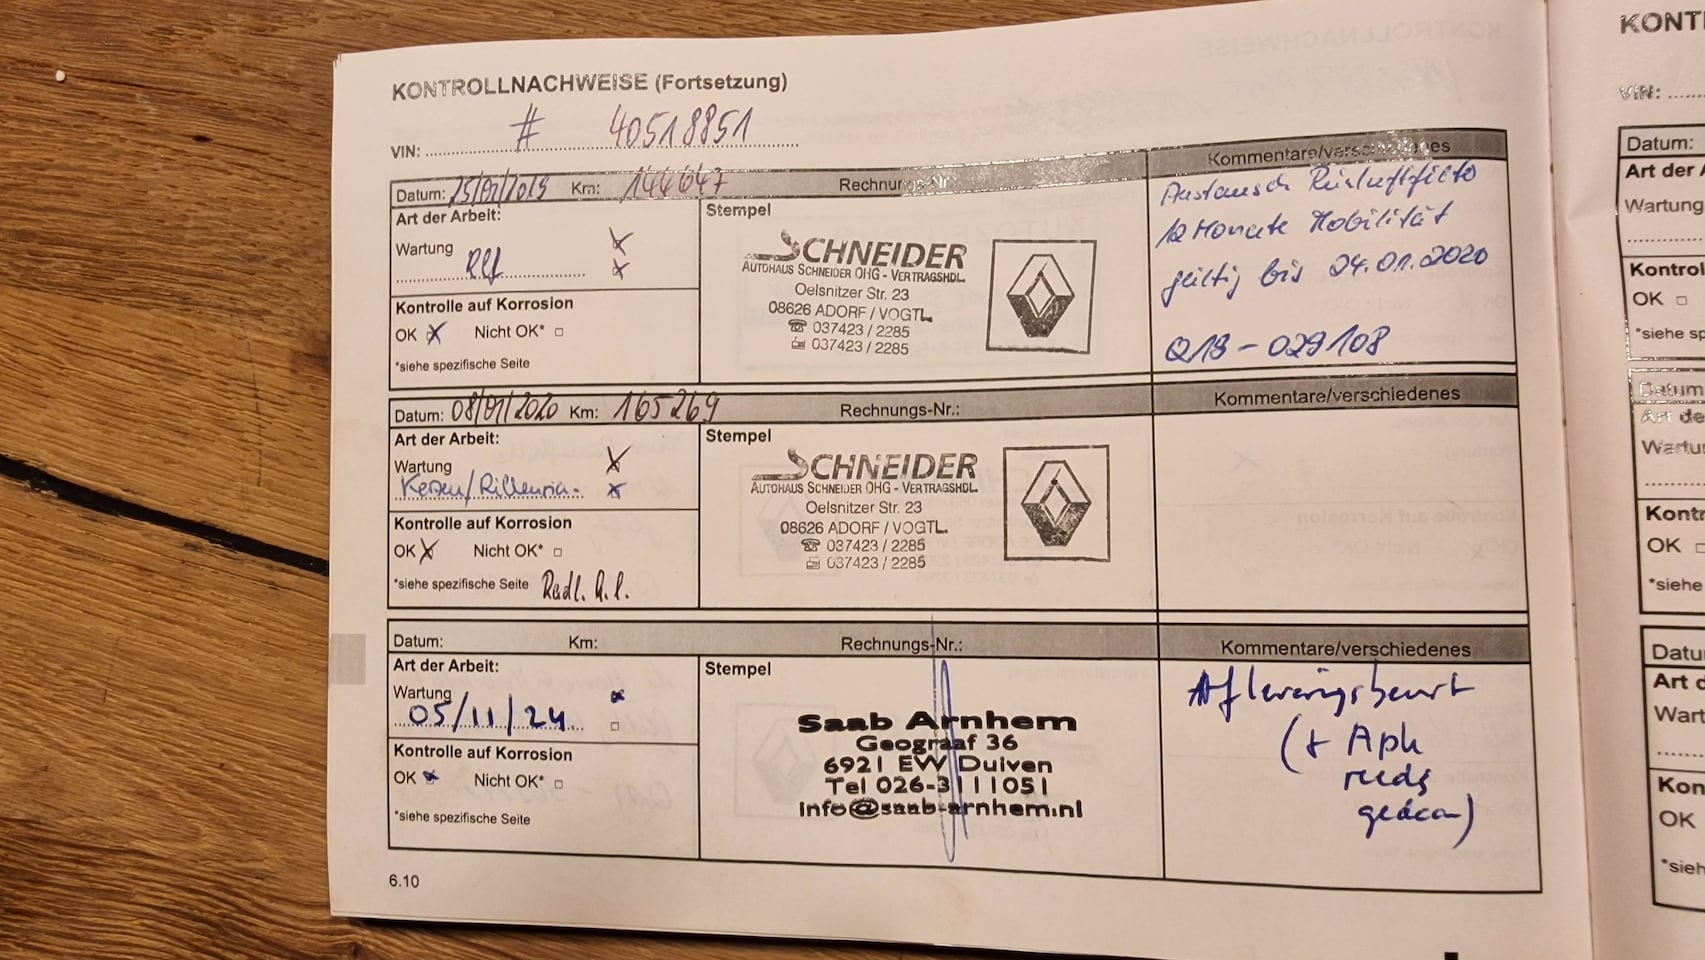 KONTROLLNACHWEISE (Fortsetzung)
VIN: # 40518851
Datum: 25/01/2019 Km: 144647 Rechnungs-Nr. Kommentare/verschiedenes
Art der Arbeit:
Wartung
Elf
Kontrolle auf Korrosion
OK Nicht OK*
*siehe spezifische Seite
Stempel
SCHNEIDER
AUTOHAUS SCHNEIDER OHG - VERTRAGSHDL.
Oelsnitzer Str. 23
08626 ADORF / VOGTL.
037423 / 2285
037423 / 2285
Austausch Reinluftfilter
12 Monate Mobilität
gültig bis 24.01.2020
Q19-029108
Datum: 08/01/2020 Km: 165269 Rechnungs-Nr.: Kommentare/verschiedenes
Art der Arbeit:
Wartung
Kontrolle auf Korrosion
OK Nicht OK*
*siehe spezifische Seite
Stempel
SCHNEIDER
AUTOHAUS SCHNEIDER OHG - VERTRAGSHDL.
Oelsnitzer Str. 23
08626 ADORF / VOGTL.
037423 / 2285
037423 / 2285
Datum: Km: Rechnungs-Nr.: Kommentare/verschiedenes
Art der Arbeit:
Wartung
05/11/24
Kontrolle auf Korrosion
OK Nicht OK*
*siehe spezifische Seite
Stempel
Saab Arnhem
Geograaf 36
6921 EW Duiven
Tel 026-3111051
info@saab-arnhem.nl
Afleveringsbeurt
(+ Apk
reeds
gedaan)
6.10
KONT
VIN:
Datum:
Art der A
Wartung
Kontrol
OK
*siehe sp
Datum
Art de
Wartu
Kontr
OK
*siehe
Datu
Art d
Wart
Kon
OK
*sieh